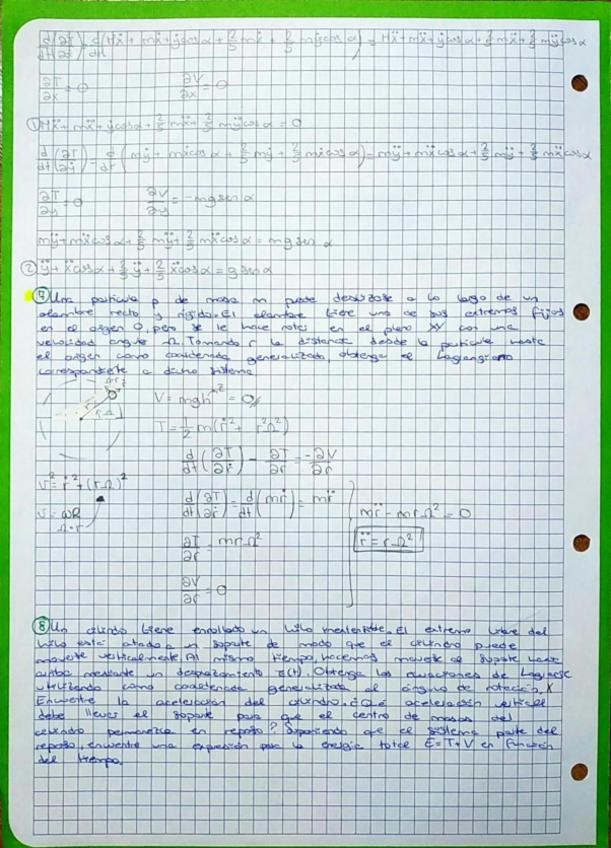 d/dt(∂T/∂ẋ) = d/dt(Mẋ + mẋ + ẏcosα + 2/5 mẋ + 2/5 mẏcosα) = Mẍ + mẍ + ÿcosα + 2/5 mẍ + 2/5 mÿcosα
∂T/∂x = 0 ∂V/∂x = 0
① Mẍ + mẍ + ÿcosα + 2/5 mẍ + 2/5 mÿcosα = 0
d/dt(∂T/∂ẏ) = d/dt(mẏ + mẋcosα + 2/5 mẏ + 2/5 mẋcosα) = mÿ + mẍcosα + 2/5 mÿ + 2/5 mẍcosα
∂T/∂y = 0 ∂V/∂y = -mgsenα
mÿ + mẍcosα + 2/5 mÿ + 2/5 mẍcosα = mgsenα
② ÿ + ẍcosα + 2/5 ÿ + 2/5 ẍcosα = gsenα
⑦ Una partícula p de masa m puede deslizarse a lo largo de un
alambre recto y rígido. El alambre tiene uno de sus extremos fijos
en el origen O, pero se le hace rotar en el plano XY con una
velocidad angular Ω. Tomando r la distancia desde la partícula hasta
el origen como coordenada generalizada, obtenga el Lagrangiano
correspondiente a dicho sistema
V = mgh = 0
T = 1/2 m(ṙ² + r²Ω²)
d/dt(∂T/∂ṙ) - ∂T/∂r = -∂V/∂r
v² = ṙ² + (rΩ)²
v = ωR
Ω·r
d/dt(∂T/∂ṙ) = d/dt(mṙ) = mr̈
mr̈ - mrΩ² = 0
∂T/∂r = mrΩ²
r̈ = rΩ²
∂V/∂r = 0
⑧ Un cilindro tiene enrollado un hilo inextensible. El extremo libre del
hilo está atado a un soporte de modo que el cilindro puede
moverse verticalmente. Al mismo tiempo, hacemos moverse el soporte hacia
arriba mediante un desplazamiento (t). Obtenga las ecuaciones de Lagrange
utilizando como coordenada generalizada el ángulo de rotación,
Encuentre la aceleración del cilindro. ¿Qué aceleración vertical
debe llevar el soporte para que el centro de masas del
cilindro permanezca en reposo? Suponiendo que el sistema parte del
reposo, encuentre una expresión para la energía total E = T + V en función
del tiempo.